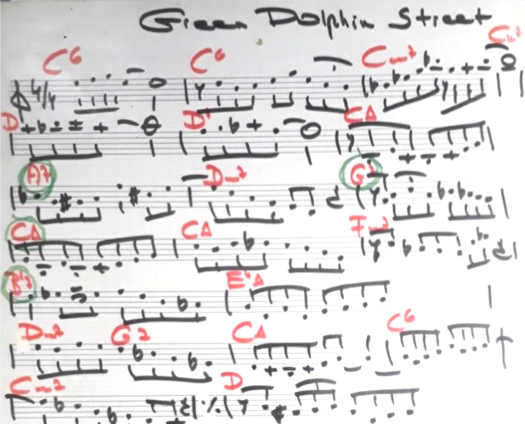 Green Dolphin Street
C6 C6 Cm7 Cm7
4/4
D D7 CΔ
A7 Dm7 G7
CΔ CΔ Fm7
B♭7 E♭Δ
Dm7 G7 CΔ C6
Cm7 D